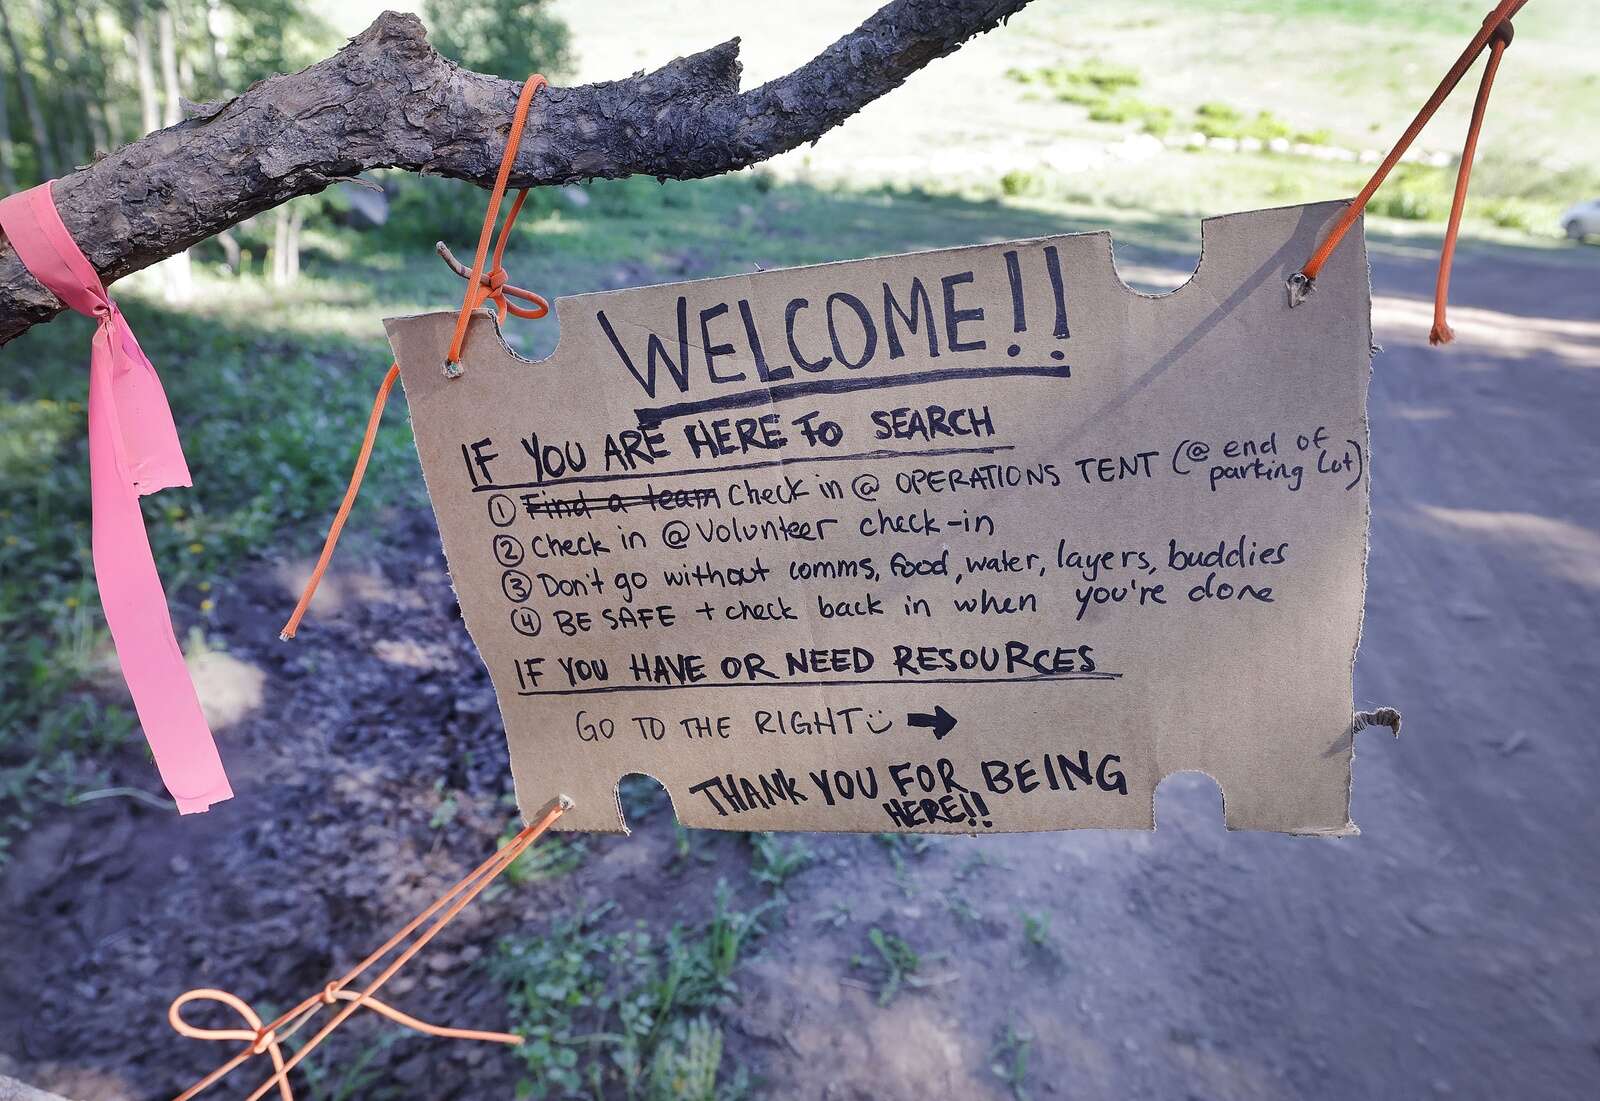 WELCOME!!
IF YOU ARE HERE TO SEARCH
① Find a team Check in @ OPERATIONS TENT (@ end of parking lot)
② Check in @ Volunteer check-in
③ Don't go without comms, food, water, layers, buddies
④ BE SAFE + check back in when you're done
IF YOU HAVE OR NEED RESOURCES
GO TO THE RIGHT →
THANK YOU FOR BEING
HERE!!